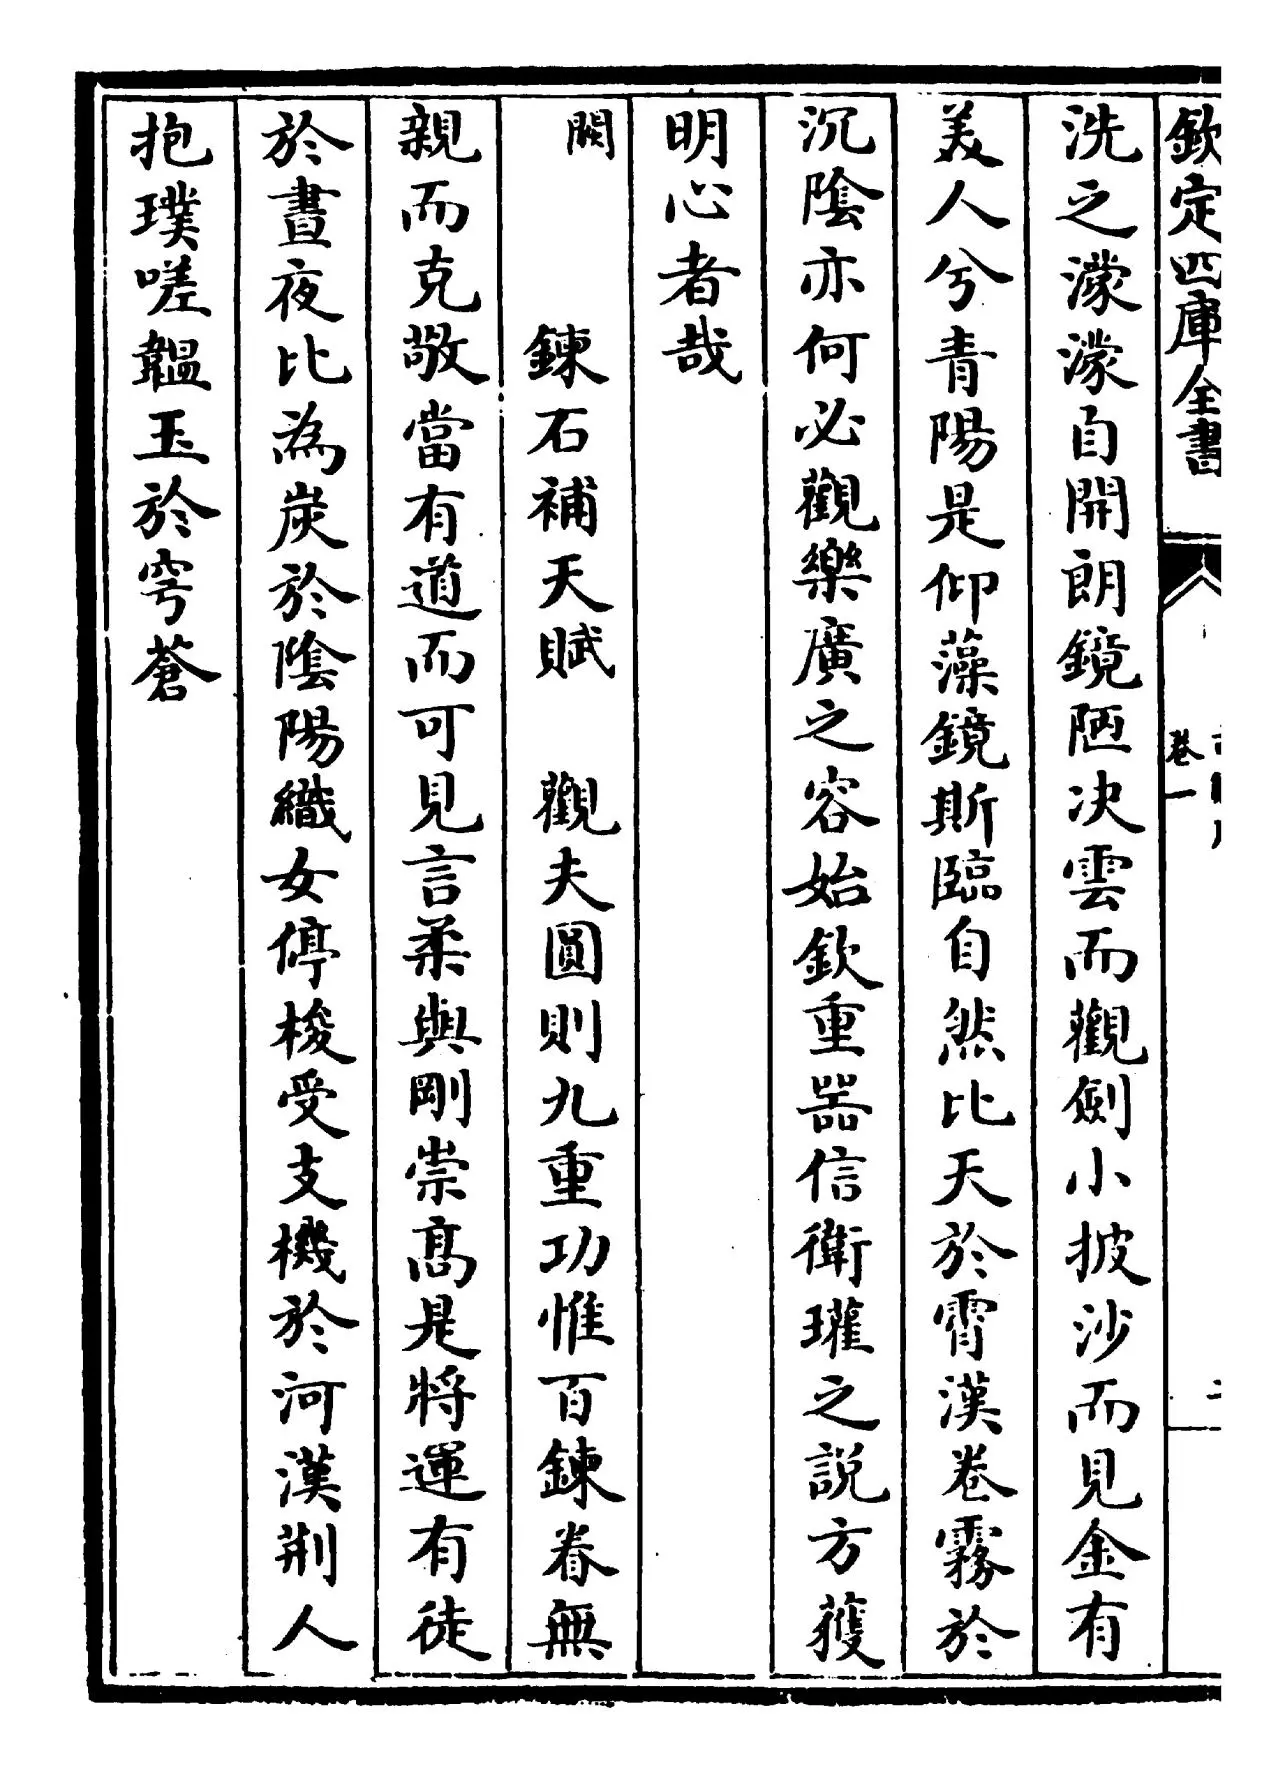 欽定四庫全書
卷一
洗之濛濛自開朗鏡陋决雲而觀劍小披沙而見金有
美人兮青陽是仰藻鏡斯臨自然比天於霄漢卷霧於
沉陰亦何必觀樂廣之容始欽重器信衛瓘之說方獲
明心者哉
闕　鍊石補天賦　觀夫圓則九重功惟百鍊眷無
親而克敬當有道而可見言柔與剛崇高是將運有徒
於晝夜比為炭於陰陽織女停梭受支機於河漢荆人
抱璞嗟韞玉於穹蒼